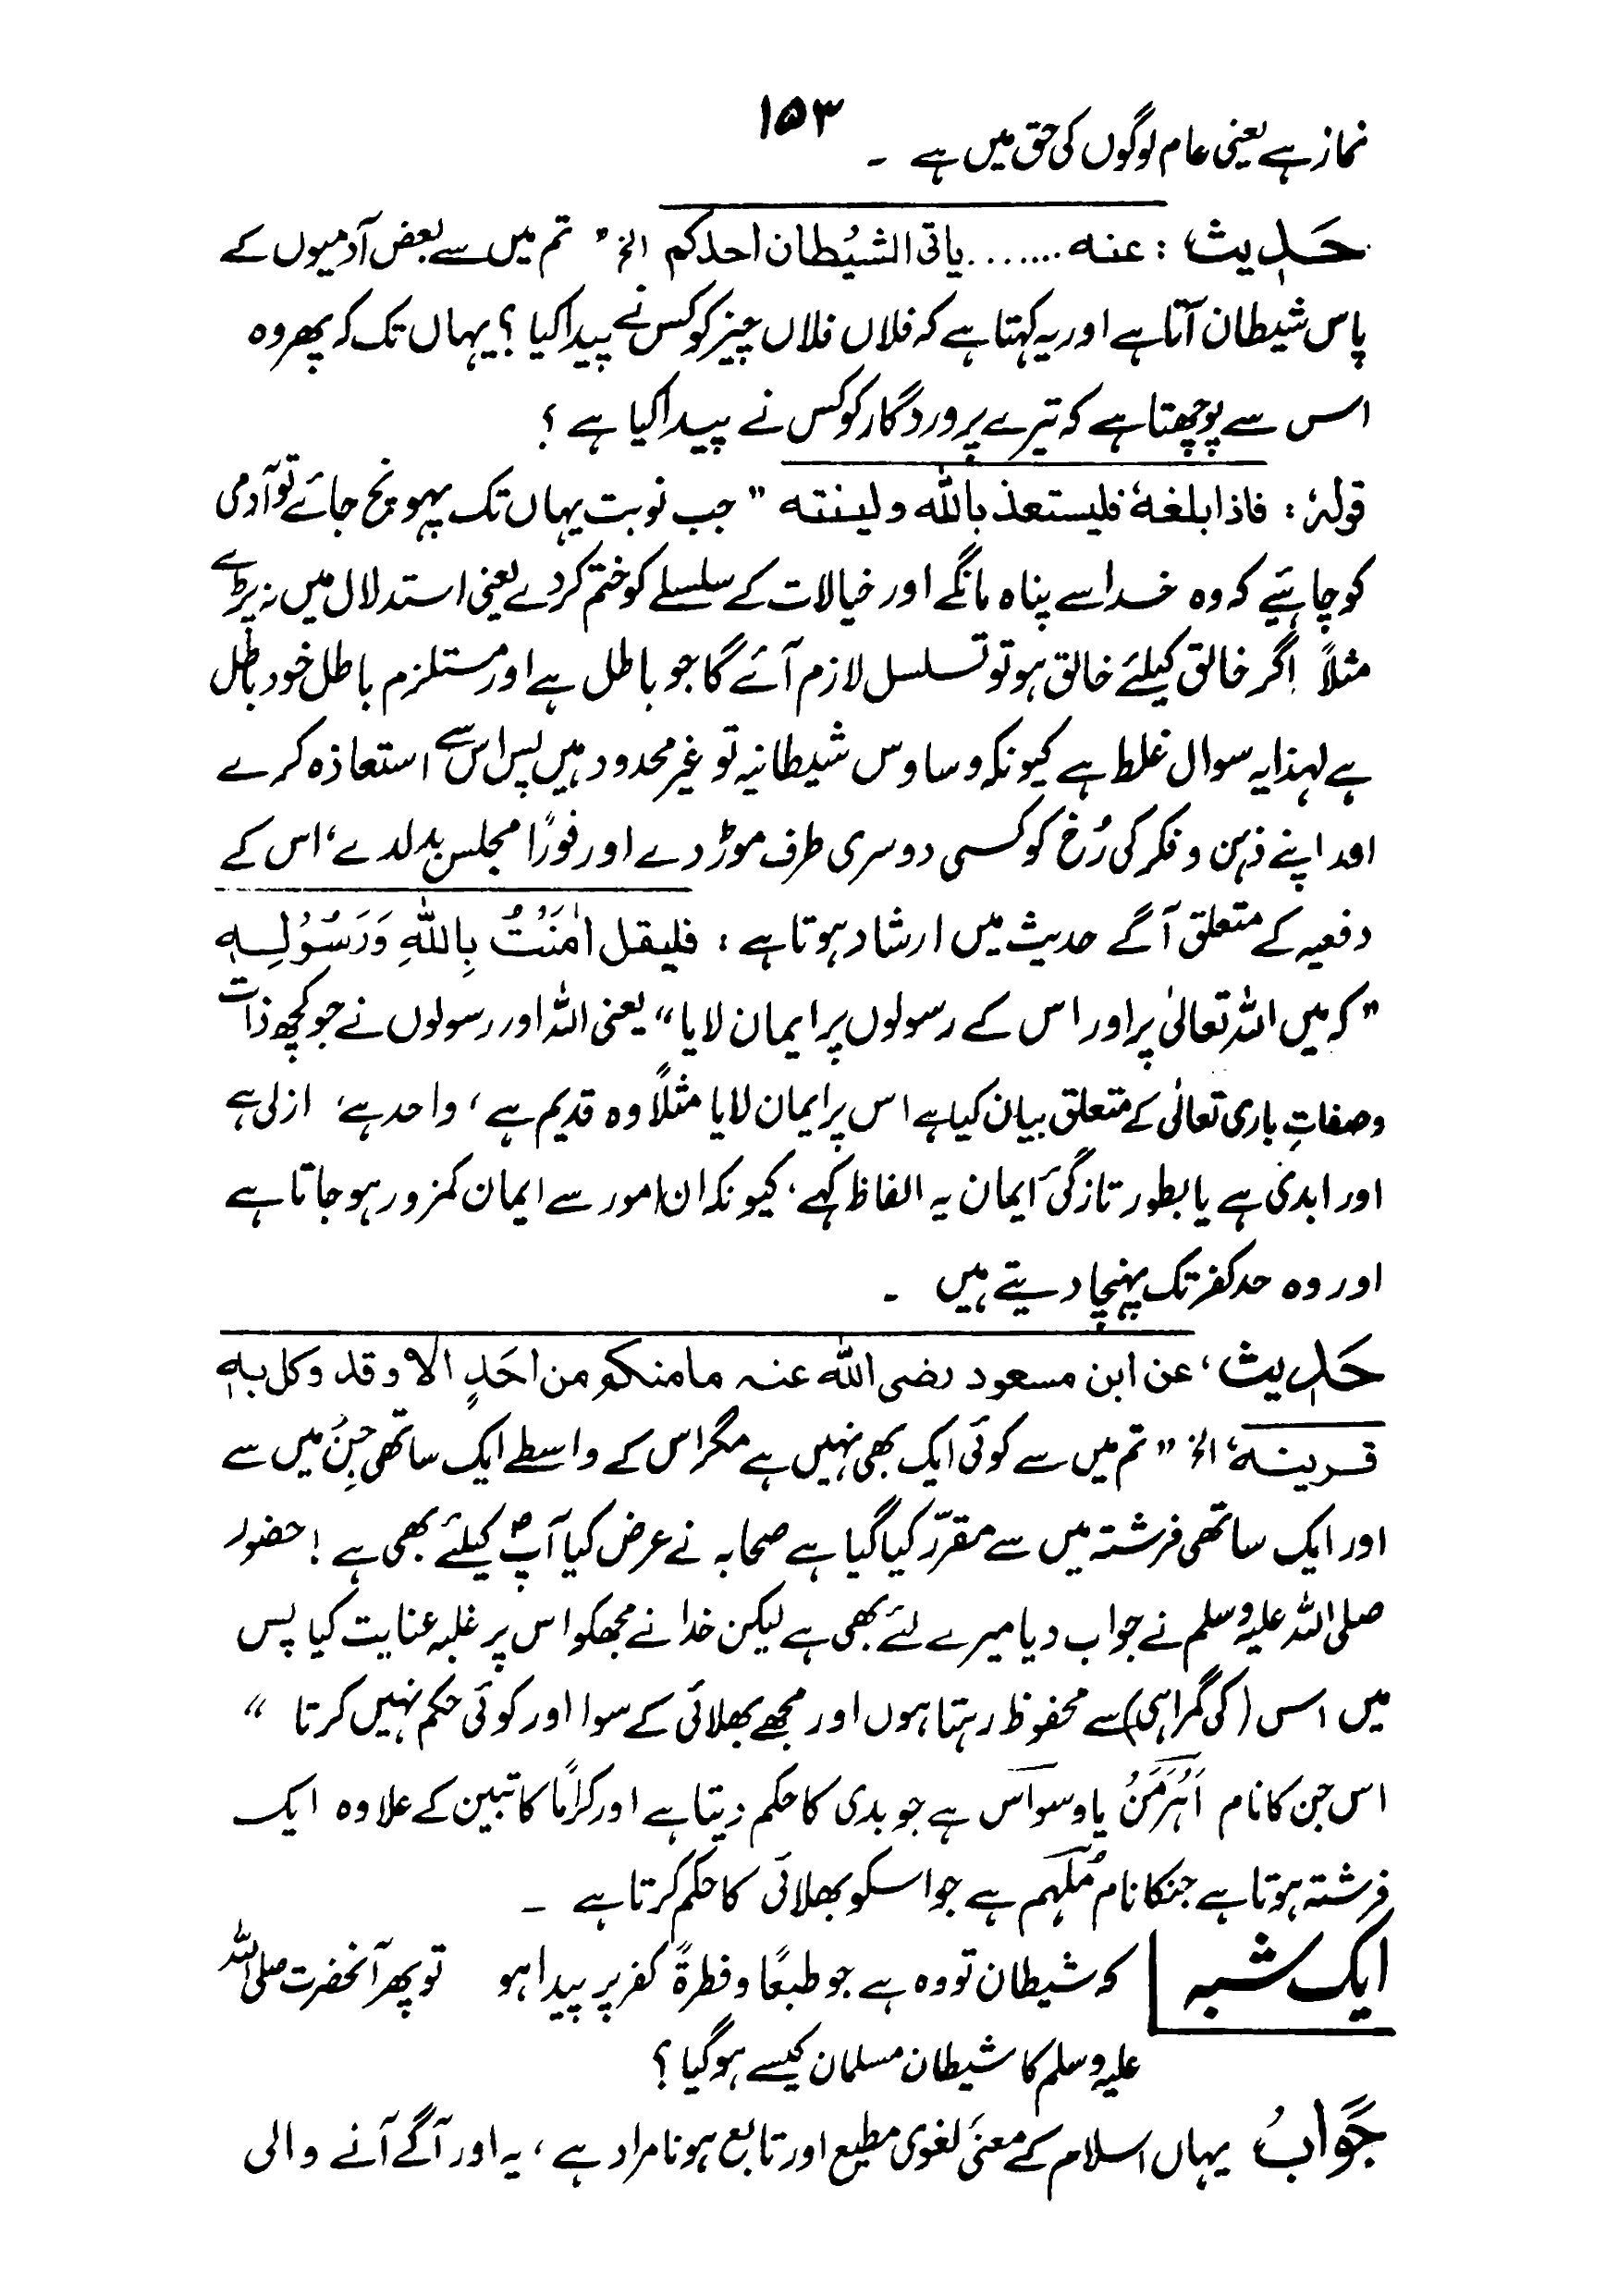 ۱۵۳
نماز ہے یعنی عام لوگوں کی حق میں ہے ۔
حَدِیث : عنہ ........ یاتی الشیُطان احدکم الخ " تم میں سے بعض آدمیوں کے
پاس شیطان آتا ہے اور یہ کہتا ہے کہ فلاں فلاں چیز کو کس نے پیدا کیا ؟ یہاں تک کہ پھر وہ
اس سے پوچھتا ہے کہ تیرے پروردگار کو کس نے پیدا کیا ہے ؟
قولہٗ : فاذا بلغہٗ فلیستعذ باللہ ولینتہ " جب نوبت یہاں تک پہونچ جائے تو آدمی
کو چاہئیے کہ وہ خدا سے پناہ مانگے اور خیالات کے سلسلے کو ختم کر دے یعنی استدلال میں نہ پڑے
مثلاً اگر خالق کیلئے خالق ہو تو تسلسل لازم آئے گا جو باطل ہے اور مستلزم باطل خود باطل
ہے لہذا یہ سوال غلط ہے کیونکہ وساوس شیطانیہ تو غیر محدود ہیں پس اس سے استعاذہ کرے
اور اپنے ذہن و فکر کی رُخ کو کسی دوسری طرف موڑ دے اور فورًا مجلس بدلدے ، اس کے
دفعیہ کے متعلق آگے حدیث میں ارشاد ہوتا ہے : فلیقل اٰمَنْتُ بِاللّٰهِ وَرَسُوُلِہٖ
" کہ میں اللہ تعالیٰ پر اور اس کے رسولوں پر ایمان لایا " یعنی اللہ اور رسولوں نے جو کچھ ذات
وصفاتِ باری تعالیٰ کے متعلق بیان کیا ہے اس پر ایمان لایا مثلًا وہ قدیم ہے ، واحد ہے ، ازلی ہے
اور ابدی ہے یا بطور تازگیٔ ایمان یہ الفاظ کہے ، کیونکہ ان امور سے ایمان کمزور ہو جاتا ہے
اور وہ حد کفر تک پہنچا دیتے ہیں ۔
حَدِیث ، عن ابن مسعود رضی اللہ عنہ مامنکم من احَدٍ الا وقد وکل بہٖ
قرینہٗ الخ " تم میں سے کوئی ایک بھی نہیں ہے مگر اس کے واسطے ایک ساتھی جِنُ میں سے
اور ایک ساتھی فرشتہ میں سے مقرّر کیا گیا ہے صحابہ نے عرض کیا آپؐ کیلئے بھی ہے ! حضور
صلی اللہ علیہ وسلم نے جواب دیا میرے لئے بھی ہے لیکن خدا نے مجھکو اس پر غلبہ عنایت کیا پس
میں اس (کی گمراہی) سے محفوظ رہتا ہوں اور مجھے بھلائی کے سوا اور کوئی حکم نہیں کرتا "
اس جن کا نام اَہُرَمَنُ یا وسوَاس ہے جو بدی کا حکم دیتا ہے اور کرامًا کاتبین کے علاوہ ایک
فرشتہ ہوتا ہے جنکا نام مُلہم ہے جو اسکو بھلائی کا حکم کرتا ہے ۔
ایک شبہ کہ شیطان تو وہ ہے جو طبعًا و فطرةً کفر پر پیدا ہو تو پھر آنحضرت صلی اللہ
علیہ وسلم کا شیطان مسلمان کیسے ہو گیا ؟
جَوابُ یہاں اسلام کے معنیٔ لغوی مطیع اور تابع ہونا مراد ہے ، یہ اور آگے آنے والی